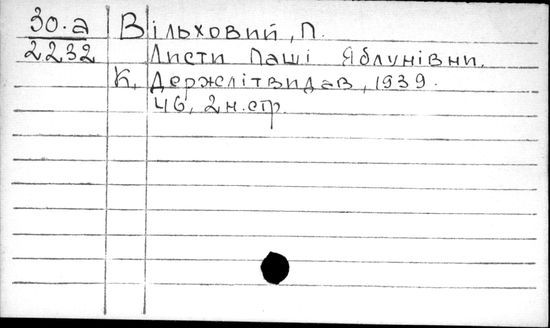 30.а Вільховий, П.
2232 Листи Паші Яблунівни.
К. Держлітвидав, 1939.
46, 2 н. стр.